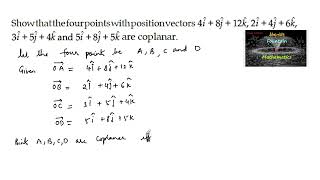 Show that the four points with position vectors 4î + 8ĵ + 12k̂, 2î + 4ĵ + 6k̂,
3î + 5ĵ + 4k̂ and 5î + 8ĵ + 5k̂ are coplanar.
let the four point be A, B, C and D
Given OA = 4î + 8ĵ + 12k̂
OB = 2î + 4ĵ + 6k̂
OC = 3î + 5ĵ + 4k̂
OD = 5î + 8ĵ + 5k̂
Point A, B, C, D are coplanar iff
Mathematics